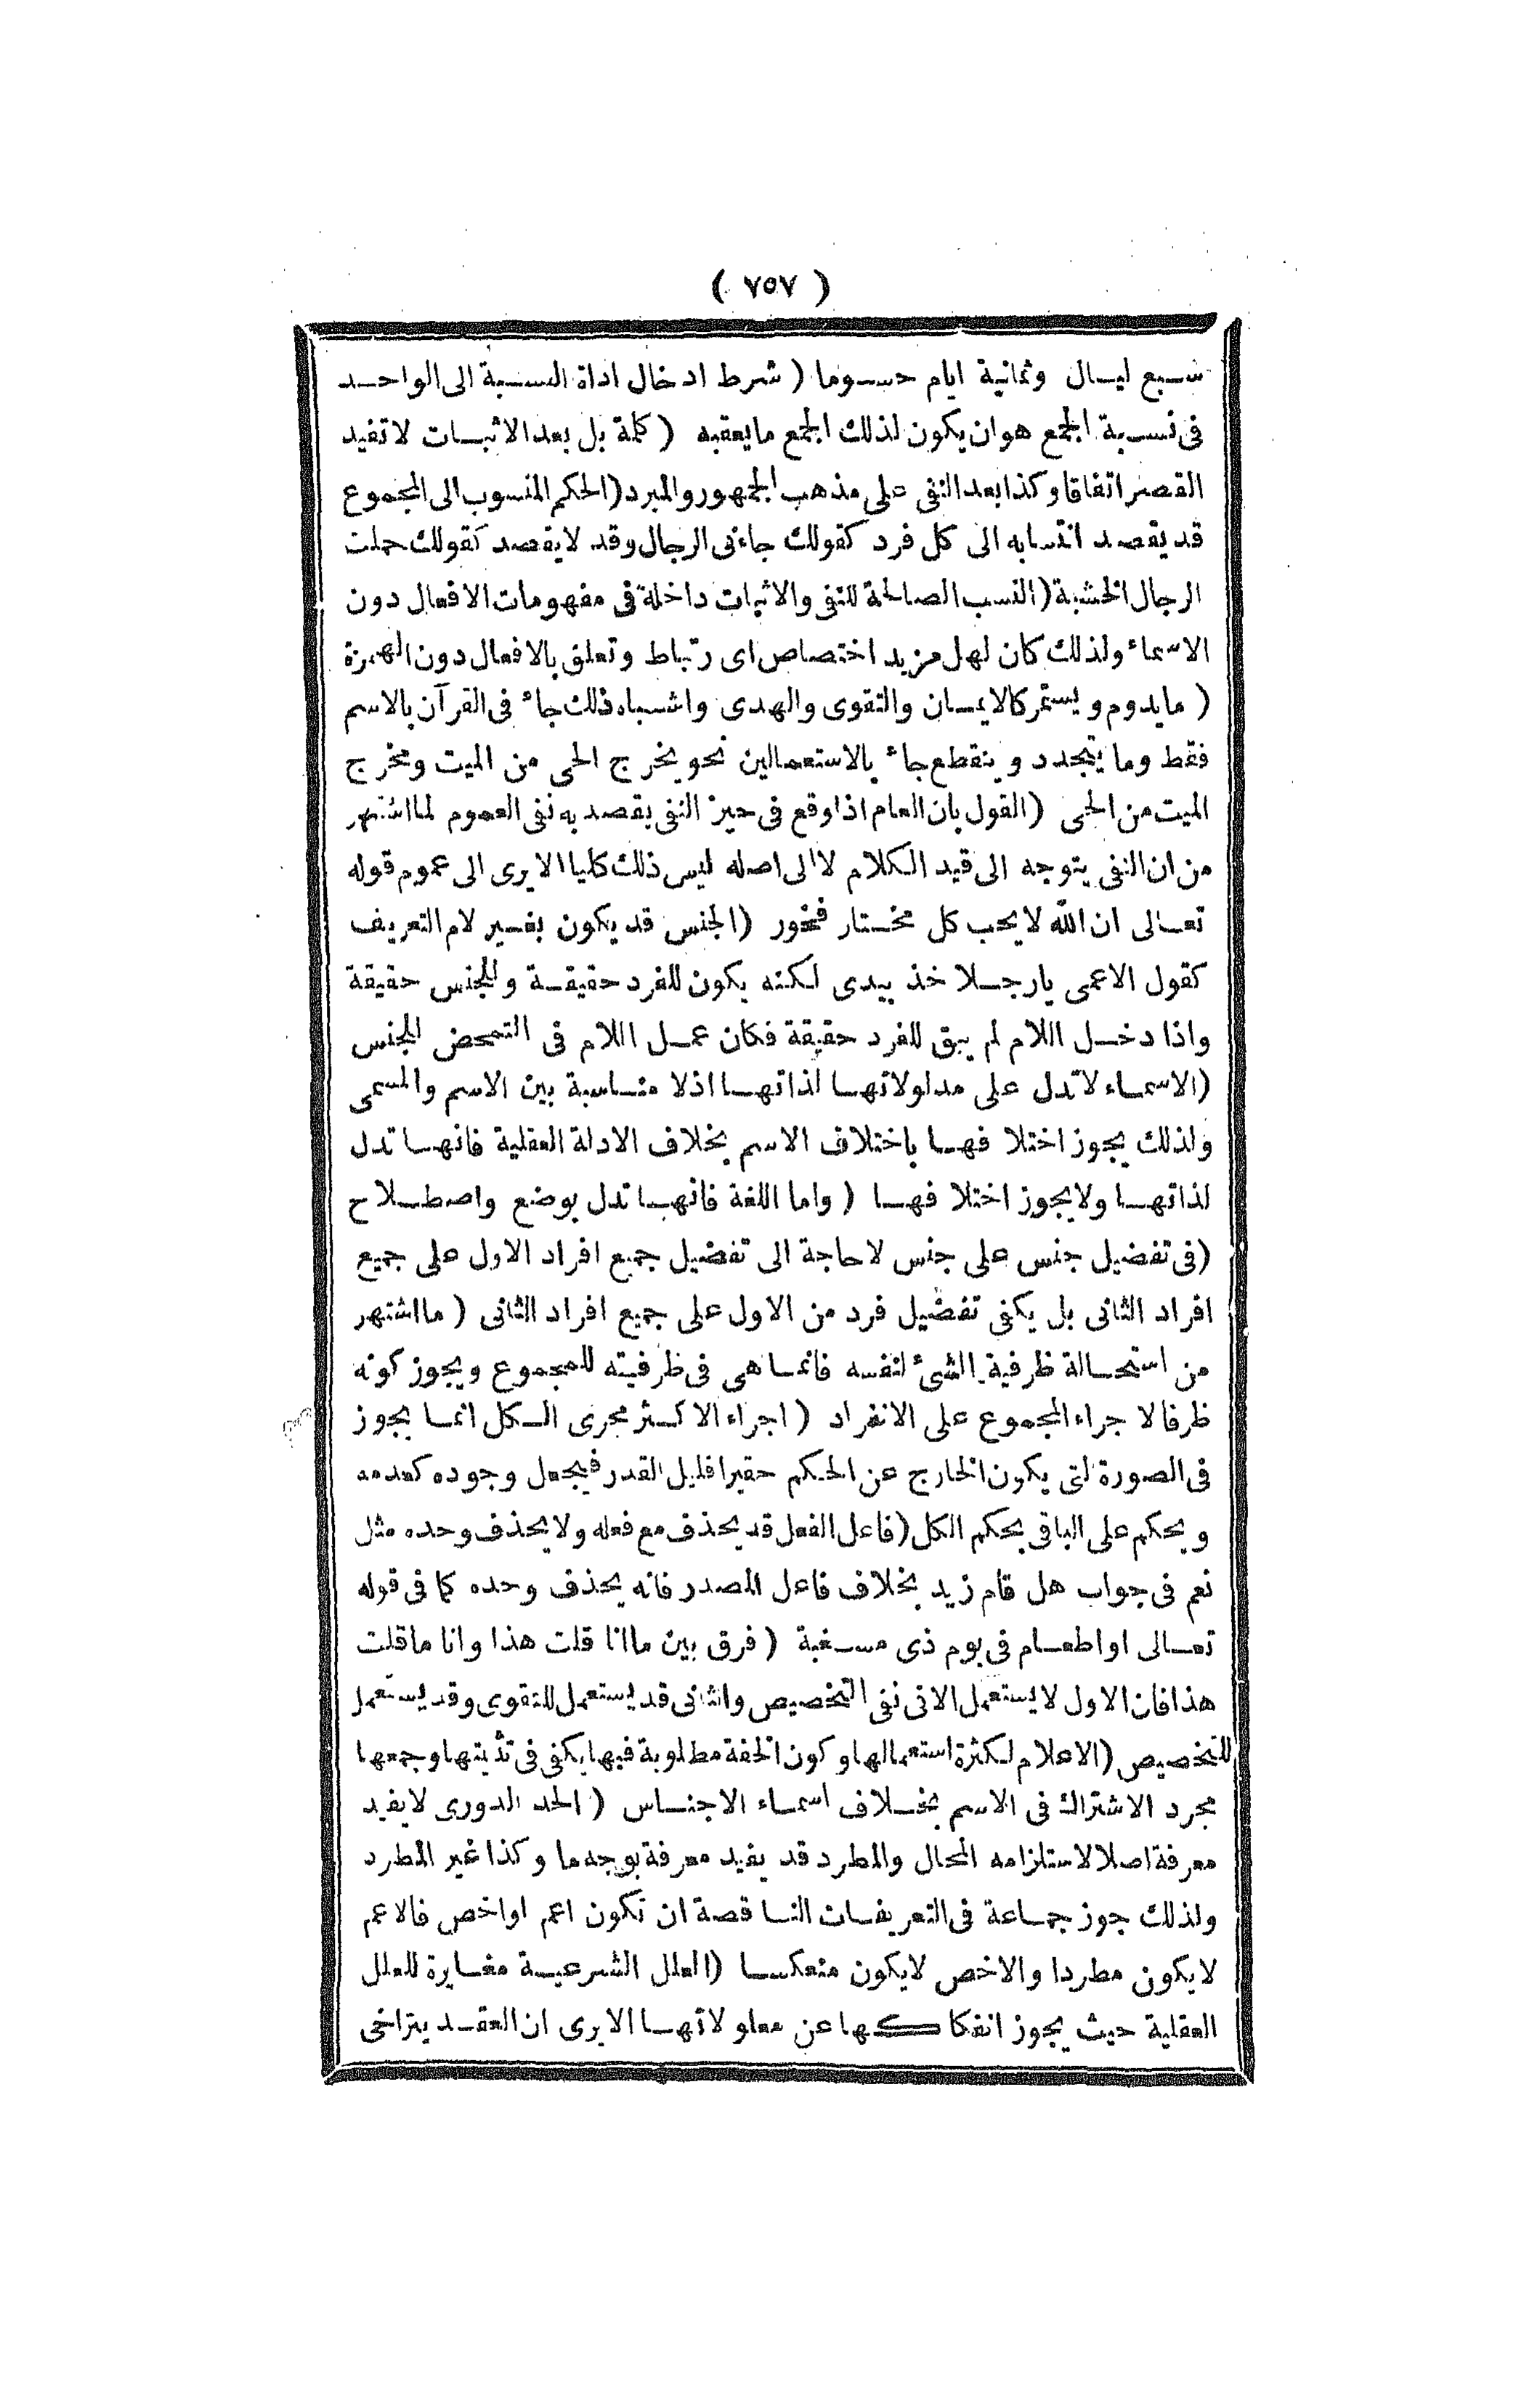 ( ٧٥٧ )
سبع ليال وثمانية ايام حسوما ( شرط ادخال اداة النسبة الى الواحد
فى نسبة الجمع هو ان يكون لذلك الجمع مايعقبه ( كلمة بل بعد الاثبات لا تفيد
القصر اتفاقا وكذا بعد النفى على مذهب الجمهور والمبرد ( الحكم المنسوب الى المجموع
قد يقصد انتسابه الى كل فرد كقولك جاءنى الرجال وقد لا يقصد كقولك حملت
الرجال الخشبة ( النسب الصالحة للنفى والاثبات داخلة فى مفهومات الافعال دون
الاسماء ولذلك كان لهل مزيد اختصاص اى رتباط وتعلق بالافعال دون الهمزة
( مايدوم ويستمر كالايمان والتقوى والهدى واشباه ذلك جاء فى القرآن بالاسم
فقط وما يتجدد وينقطع جاء بالاستعمالين نحو يخرج الحى من الميت ومخرج
الميت من الحى ( القول بان العام اذا وقع فى حيز النفى يقصد به نفى العموم لما اشتهر
من ان النفى يتوجه الى قيد الكلام لا الى اصله ليس ذلك كليا الا يرى الى عموم قوله
تعالى ان الله لا يحب كل مختار فخور ( الجنس قد يكون بغير لام التعريف
كقول الاعمى يا رجلا خذ بيدى لكنه يكون للفرد حقيقة وللجنس حقيقة
واذا دخل اللام لم يبق للفرد حقيقة فكان عمل اللام فى التمحض للجنس
( الاسماء لا تدل على مدلولاتها لذاتها اذ لا مناسبة بين الاسم والمسمى
ولذلك يجوز اختلا فها باختلاف الاسم بخلاف الادلة العقلية فانها تدل
لذاتها ولا يجوز اختلا فها ( واما اللغة فانها تدل بوضع واصطلاح
( فى تفضيل جنس على جنس لا حاجة الى تفضيل جميع افراد الاول على جميع
افراد الثانى بل يكفى تفضيل فرد من الاول على جميع افراد الثانى ( ما اشتهر
من استحالة ظرفية الشئ لنفسه فانما هى فى ظرفيته للمجموع ويجوز كونه
ظرفا لا جراء المجموع على الانفراد ( اجراء الاكثر مجرى الكل انما يجوز
فى الصورة لتى يكون الخارج عن الحكم حقيرا قليل القدر فيجعل وجوده كعدمه
ويحكم على الباقى بحكم الكل ( فاعل الفعل قد يحذف مع فعله ولا يحذف وحده مثل
نعم فى جواب هل قام زيد بخلاف فاعل المصدر فانه يحذف وحده كما فى قوله
تعالى او اطعام فى يوم ذى مسغبة ( فرق بين ما انا قلت هذا وانا ما قلت
هذا فان الاول لا يستعمل الا فى نفى التخصيص والثانى قد يستعمل للتقوى وقد يستعمل
للتخصيص ( الاعلام لكثرة استعمالها وكون الخفة مطلوبة فيها يكفى فى تثنيتها وجمعها
مجرد الاشتراك فى الاسم بخلاف اسماء الاجناس ( الحد الدورى لا يفيد
معرفة اصلا لاستلزامه المحال والمطرد قد يفيد معرفة بوجه ما وكذا غير المطرد
ولذلك جوز جماعة فى التعريفات الناقصة ان تكون اعم او اخص فالاعم
لا يكون مطردا والاخص لا يكون منعكسا ( العلل الشرعية مغايرة للعلل
العقلية حيث يجوز انفكاكها عن معلولاتها الا يرى ان العقد يتراخى